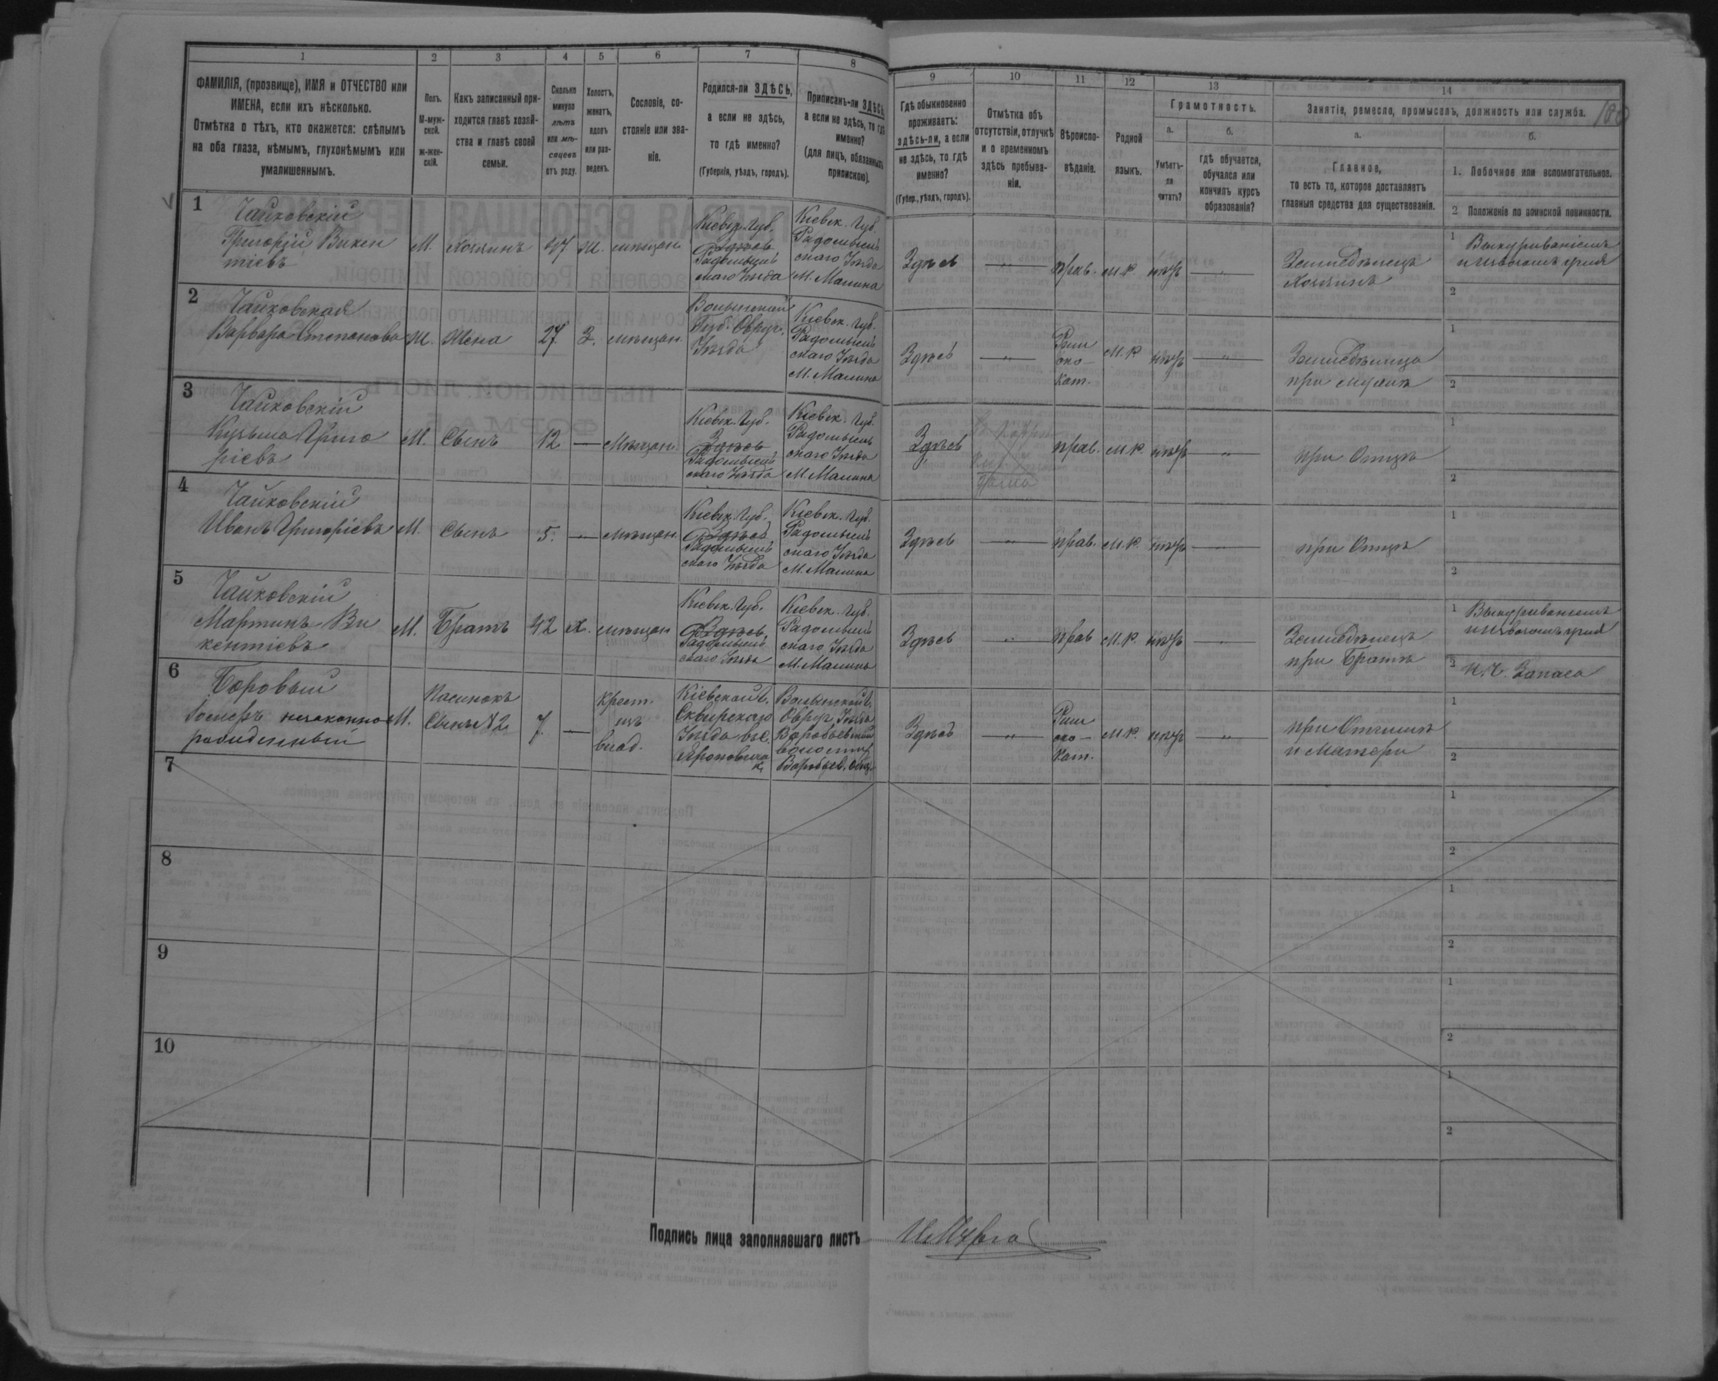 1
2
3
4
5
6
7
8
ФАМИЛІЯ, (прозвище), ИМЯ и ОТЧЕСТВО или
ИМЕНА, если ихъ нѣсколько.
Отмѣтка о тѣхъ, кто окажется: слѣпымъ
на оба глаза, нѣмымъ, глухонѣмымъ или
умалишеннымъ.
Полъ.
М-муж-
ской.
ж-жен-
скій.
Какъ записанный при-
ходится главѣ хозяй-
ства и главѣ своей
семьи.
Сколько
минуло
лѣтъ
или мѣ-
сяцевъ
отъ роду.
Холостъ,
женатъ,
вдовъ
или раз-
веденъ.
Сословіе, со-
стояніе или зва-
ніе.
Родился-ли ЗДѢСЬ,
а если не здѣсь,
то гдѣ именно?
(Губернія, уѣздъ, городъ).
Приписанъ-ли ЗДѢСЬ,
а если не здѣсь, то гдѣ
именно?
(для лицъ, обязанныхъ
припискою).
9
10
11
12
13
14
Гдѣ обыкновенно
проживаетъ:
здѣсь-ли, а если
не здѣсь, то гдѣ
именно?
(Губер., уѣздъ, городъ).
Отмѣтка объ
отсутствіи, отлучкѣ
и о временномъ
здѣсь пребыва-
ніи.
Вѣроиспо-
вѣданіе.
Родной
языкъ.
Грамотность.
а.
б.
Умѣетъ-
ли
читать?
гдѣ обучается,
обучался или
кончилъ курсъ
образованія?
Занятіе, ремесло, промыселъ, должность или служба.
а.
б.
Главное,
то есть то, которое доставляетъ
главныя средства для существованія.
1. Побочное или вспомогательное.
2 Положеніе по воинской повинности.
1
Чайковскій
Григорій Викен
тіевъ
М.
Хозяинъ
47
Ж.
мѣщан.
Кіевск. Губ.
Здѣсь
Радомысль
скаго Уѣзда
Кіевск. Губ.
Радомысль
скаго Уѣзда
М. Малина
Здѣсь
—"—
прав.
М.Р.
нѣтъ
—"—
Земледѣлецъ
Хозяинъ
1
2
2
Чайковская
Варвара Степанова
Ж.
Жена
27
З.
мѣщан.
Волынской
Губ. Овруч.
Уѣзда
Кіевск. Губ.
Радомысль
скаго Уѣзда
М. Малина
Здѣсь
—"—
Рим
ско
Кат.
М.Р
нѣтъ
—"—
Земледѣлица
при мужѣ
1
2
3
Чайковскій
Кузьма Григо
ріевъ
М.
Сынъ
12
—
Мѣщан.
Кіевск. Губ.
Здѣсь
Радомысль
скаго Уѣзда
Кіевск. Губ.
Радомысль
скаго Уѣзда
М. Малина
Здѣсь
прав.
М.Р
нѣтъ
—"—
при Отцѣ
1
2
4
Чайковскій
Иванъ Григоріевъ
М.
Сынъ
5.
—
мѣщан.
Кіевск. Губ.
Здѣсь
Радомысль
скаго Уѣзда
Кіевск. Губ.
Радомысль
скаго Уѣзда
М. Малина
Здѣсь
—"—
прав.
М.Р
нѣтъ
—"—
при Отцѣ
1
2
5
Чайковскій
Мартинъ Ви
кентіевъ
М.
Братъ
42
х.
мѣщан
Кіевск. Губ.
Здѣсь
Радомысль
скаго Уѣзда
Кіевск. Губ.
Радомысль
скаго Уѣзда
М. Малина
Здѣсь
—"—
прав
М.Р
нѣтъ
—"—
Земледѣлецъ
при Братѣ
1
2
Запаса
6
Боровый
незаконно
рожденный
М.
Пасынокъ
Сынъ №2
7.
—
Крест.
изъ
влад.
Кіевской Г.
Сквирскаго
Уѣзда
Волынской Г.
Овруч. Уѣзда
волости
Здѣсь
—"—
Рим
ско
Кат.
М.Р.
нѣтъ
—"—
при Отчимѣ
и Матери
1
2
7
1
2
8
1
2
9
1
2
10
1
2
Подпись лица заполнявшаго листъ